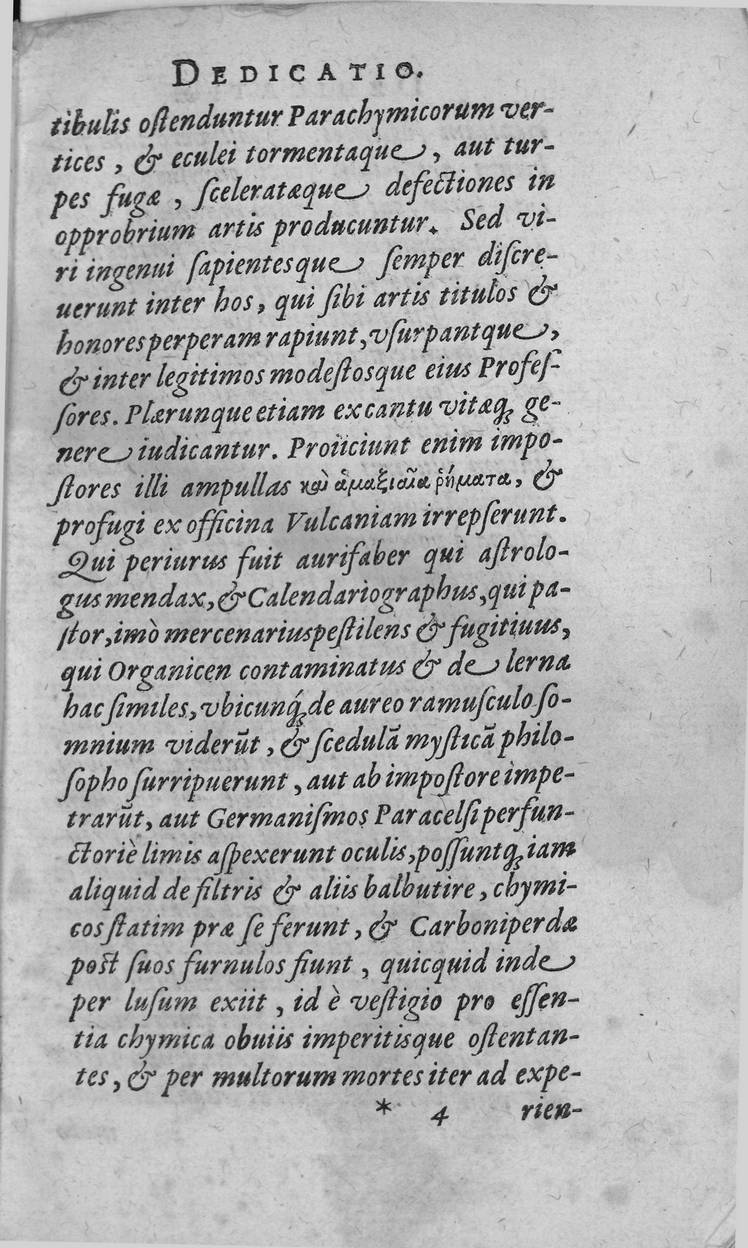 DEDICATIO.
tibulis oſtenduntur Parachymicorum ver-
tices, & eculei tormentaque, aut tur-
pes fugæ, ſcelerataeque defectiones in
opprobrium artis producuntur. Sed vi-
ri ingenui ſapientesque ſemper diſcre-
uerunt inter hos, qui ſibi artis titulos &
honores perperam rapiunt, vſurpantque,
& inter legitimos modeſtosque eius Profeſ-
ſores. Plærunque etiam ex cantu vitæq́; ge-
nere iudicantur. Proiiciunt enim impo-
ſtores illi ampullas καὶ ἁμαξιαῖα ῥήματα, &
profugi ex officina Vulcaniam irrepſerunt.
Qui periurus fuit aurifaber qui aſtrolo-
gus mendax, & Calendariographus, qui pa-
ſtor, imò mercenarius peſtilens & fugitiuus,
qui Organicen contaminatus & de lerna
hac ſimiles, vbicunq́; de aureo ramuſculo ſo-
mnium viderūt, & ſcedulā myſticā philo-
ſopho ſurripuerunt, aut ab impoſtore impe-
trarūt, aut Germaniſmos Paracelſi perfun-
ctoriè limis aſpexerunt oculis, poſſuntq́; iam
aliquid de filtris & aliis balbutire, chymi-
cos ſtatim præ ſe ferunt, & Carboniperdæ
poſt ſuos furnulos fiunt, quicquid inde
per luſum exiit, id è veſtigio pro eſſen-
tia chymica obuiis imperitisque oſtentan-
tes, & per multorum mortes iter ad expe-
* 4 rien-